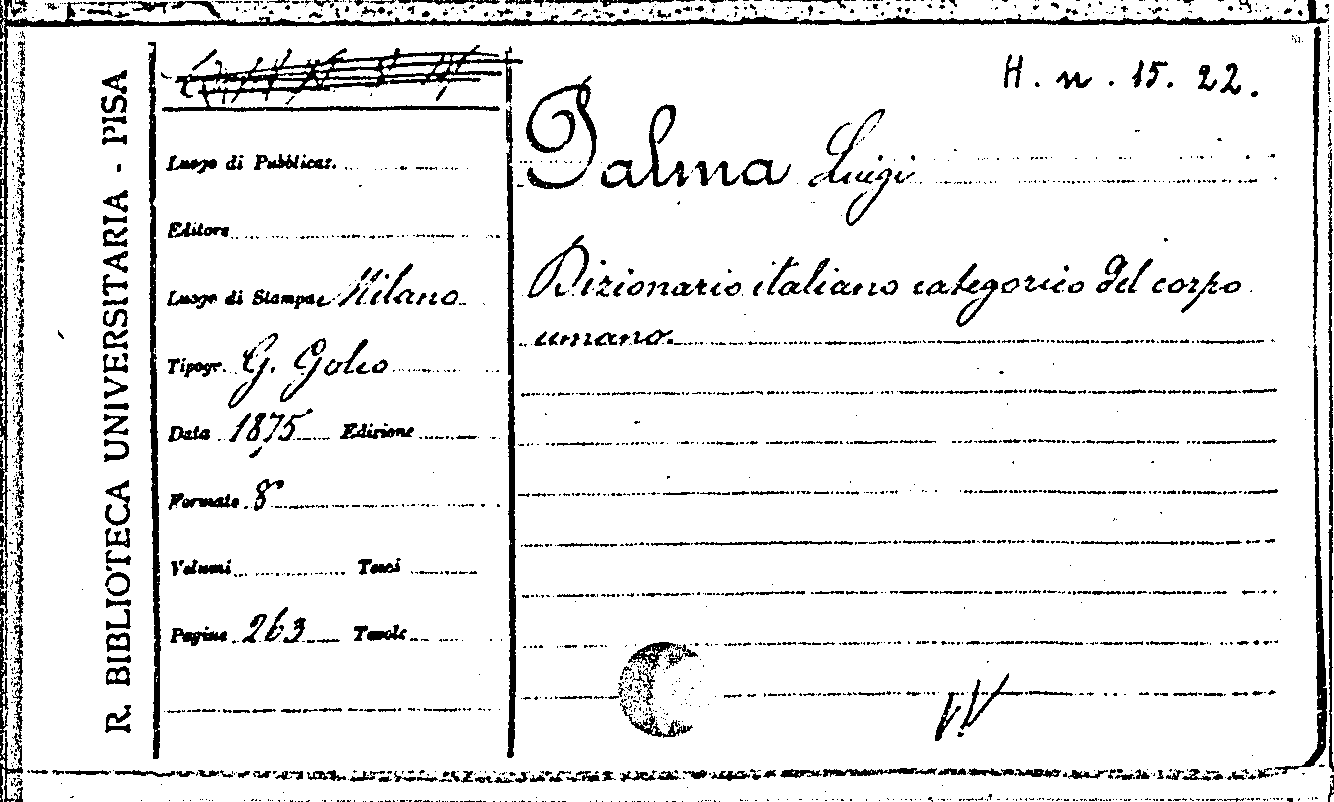 R. BIBLIOTECA UNIVERSITARIA - PISA
H. n. 15. 22.
Palma Luigi
Dizionario italiano categorico del corpo
umano.
Luogo di Pubblicaz.
Editore
Luogo di Stampa Milano
Tipogr. G. Golio
Data 1875 Edizione
Formato 8º
Volumi Tomi
Pagine 263 Tavole